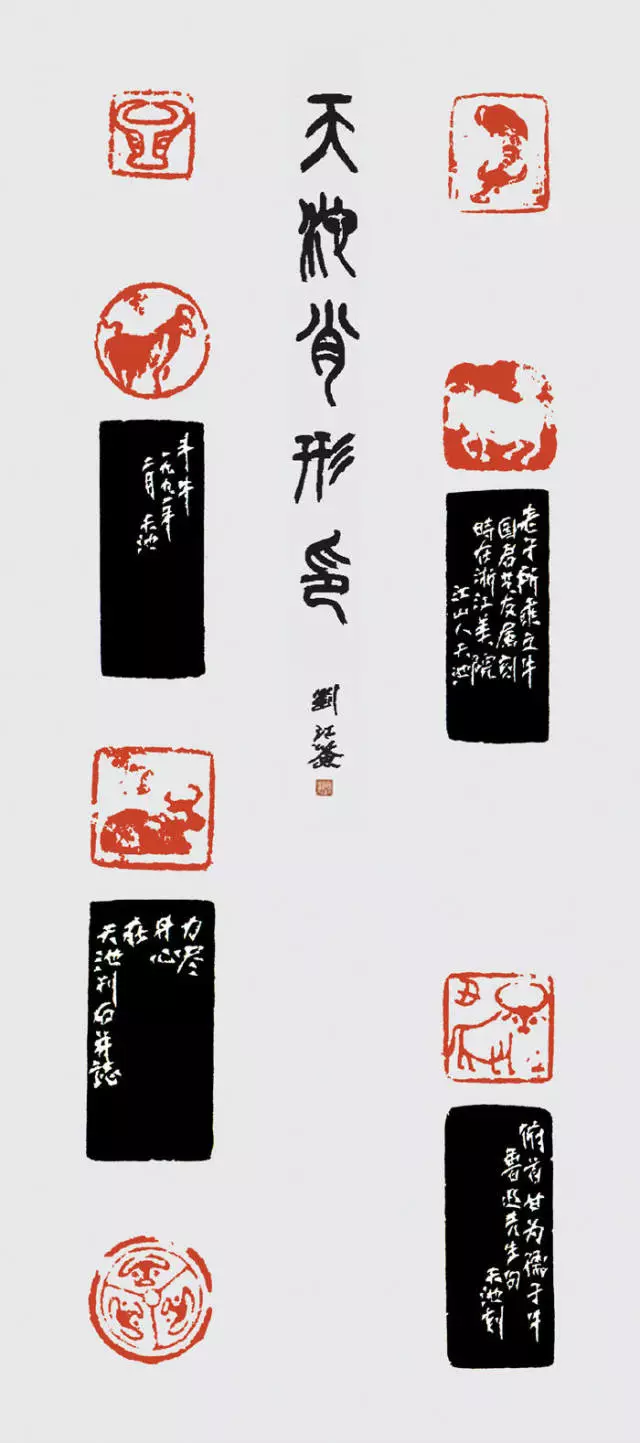 天池肖形印
劉江簽
老子所乘之牛
国君友属刻
時在浙江美院
江山人天池
丑
俯首甘为孺子牛
魯迅先生句
天池刻
斗牛
二月 天池
力尽
身心
在
天池刊石并誌